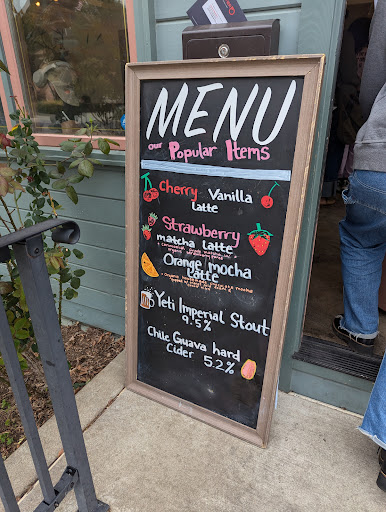 MENU
our Popular Items
Cherry Vanilla
latte
Strawberry
matcha latte
Orange mocha
latte
Yeti Imperial Stout
9.5%
Chile Guava hard
Cider 5.2%